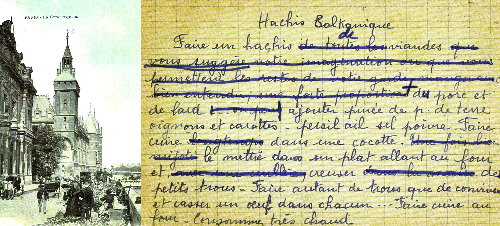 PARIS
Hachis Balkanique
Faire un hachis de toutes les viandes que
de
vous suggère votre imagination ou que vous
permettent les restes de votre garde manger
bien entendu, une forte proportion du porc et
de lard ajouter purée de p. de terre
oignons et carottes - persil ail sel poivre. Faire
cuire longtemps dans une cocotte. Une fois
le mettre dans un plat allant au four
et, creuser des
petits trous - Faire autant de trous que de convives
et casser un oeuf dans chacun ... Faire cuire au
four - Consommer très chaud